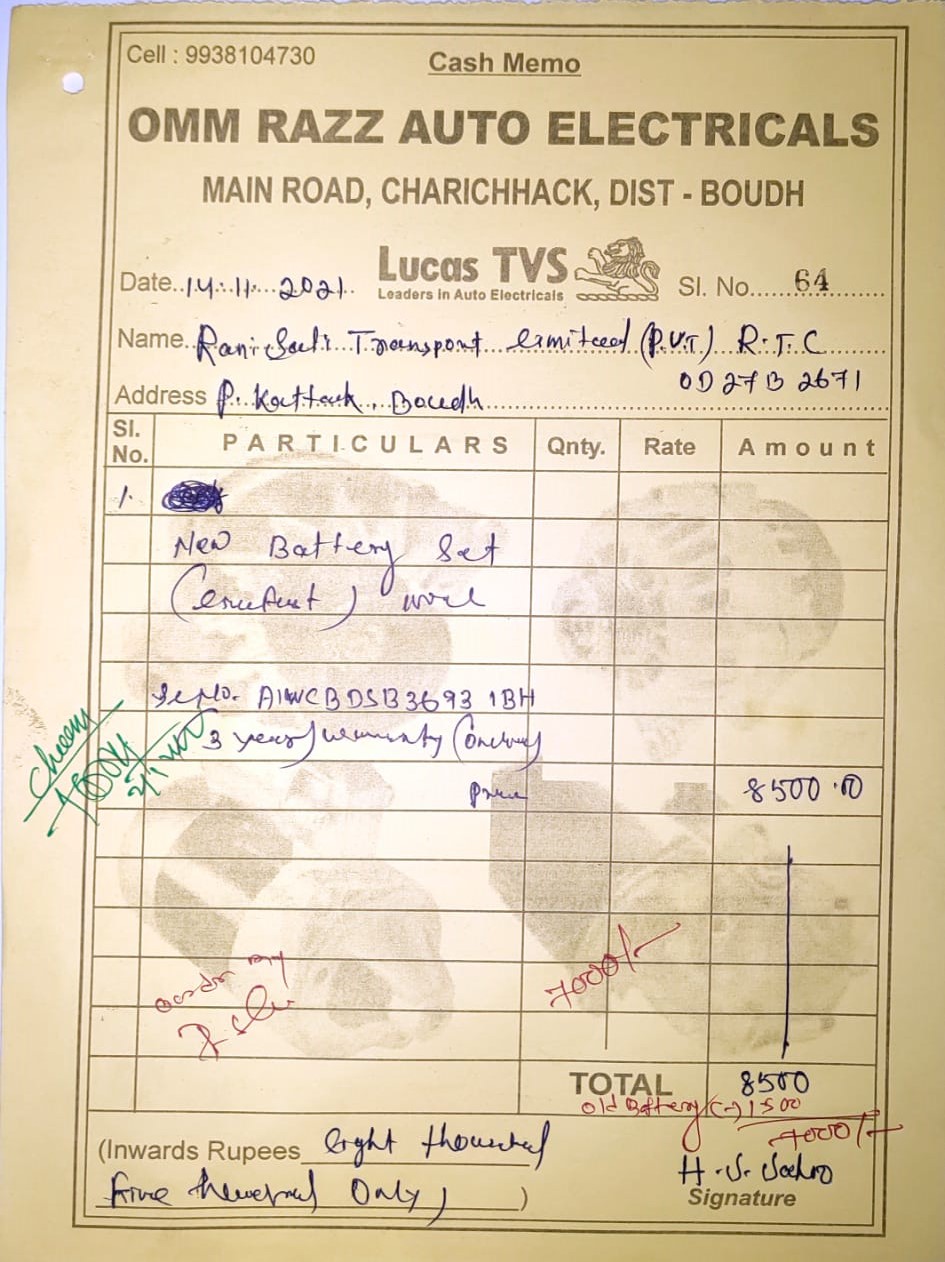 Cell : 9938104730
Cash Memo
OMM RAZZ AUTO ELECTRICALS
MAIN ROAD, CHARICHHACK, DIST - BOUDH
Lucas TVS
Leaders in Auto Electricals
Date..14.11.2021.
Sl. No.....64
Name..Rani Sati Transport Limited (P.V.T.) R.T.C
OD 27B 2671
Address P. Kattack, Boudh
Sl. No. PARTICULARS Qnty. Rate Amount
1.
New Battery Set
Sl No. A1WCBDSB3693 1BH
3 years
8500.00
7000/-
TOTAL 8500
Old Battery (-) 1500
7000/-
(Inwards Rupees eight thousand
five Only)
Signature